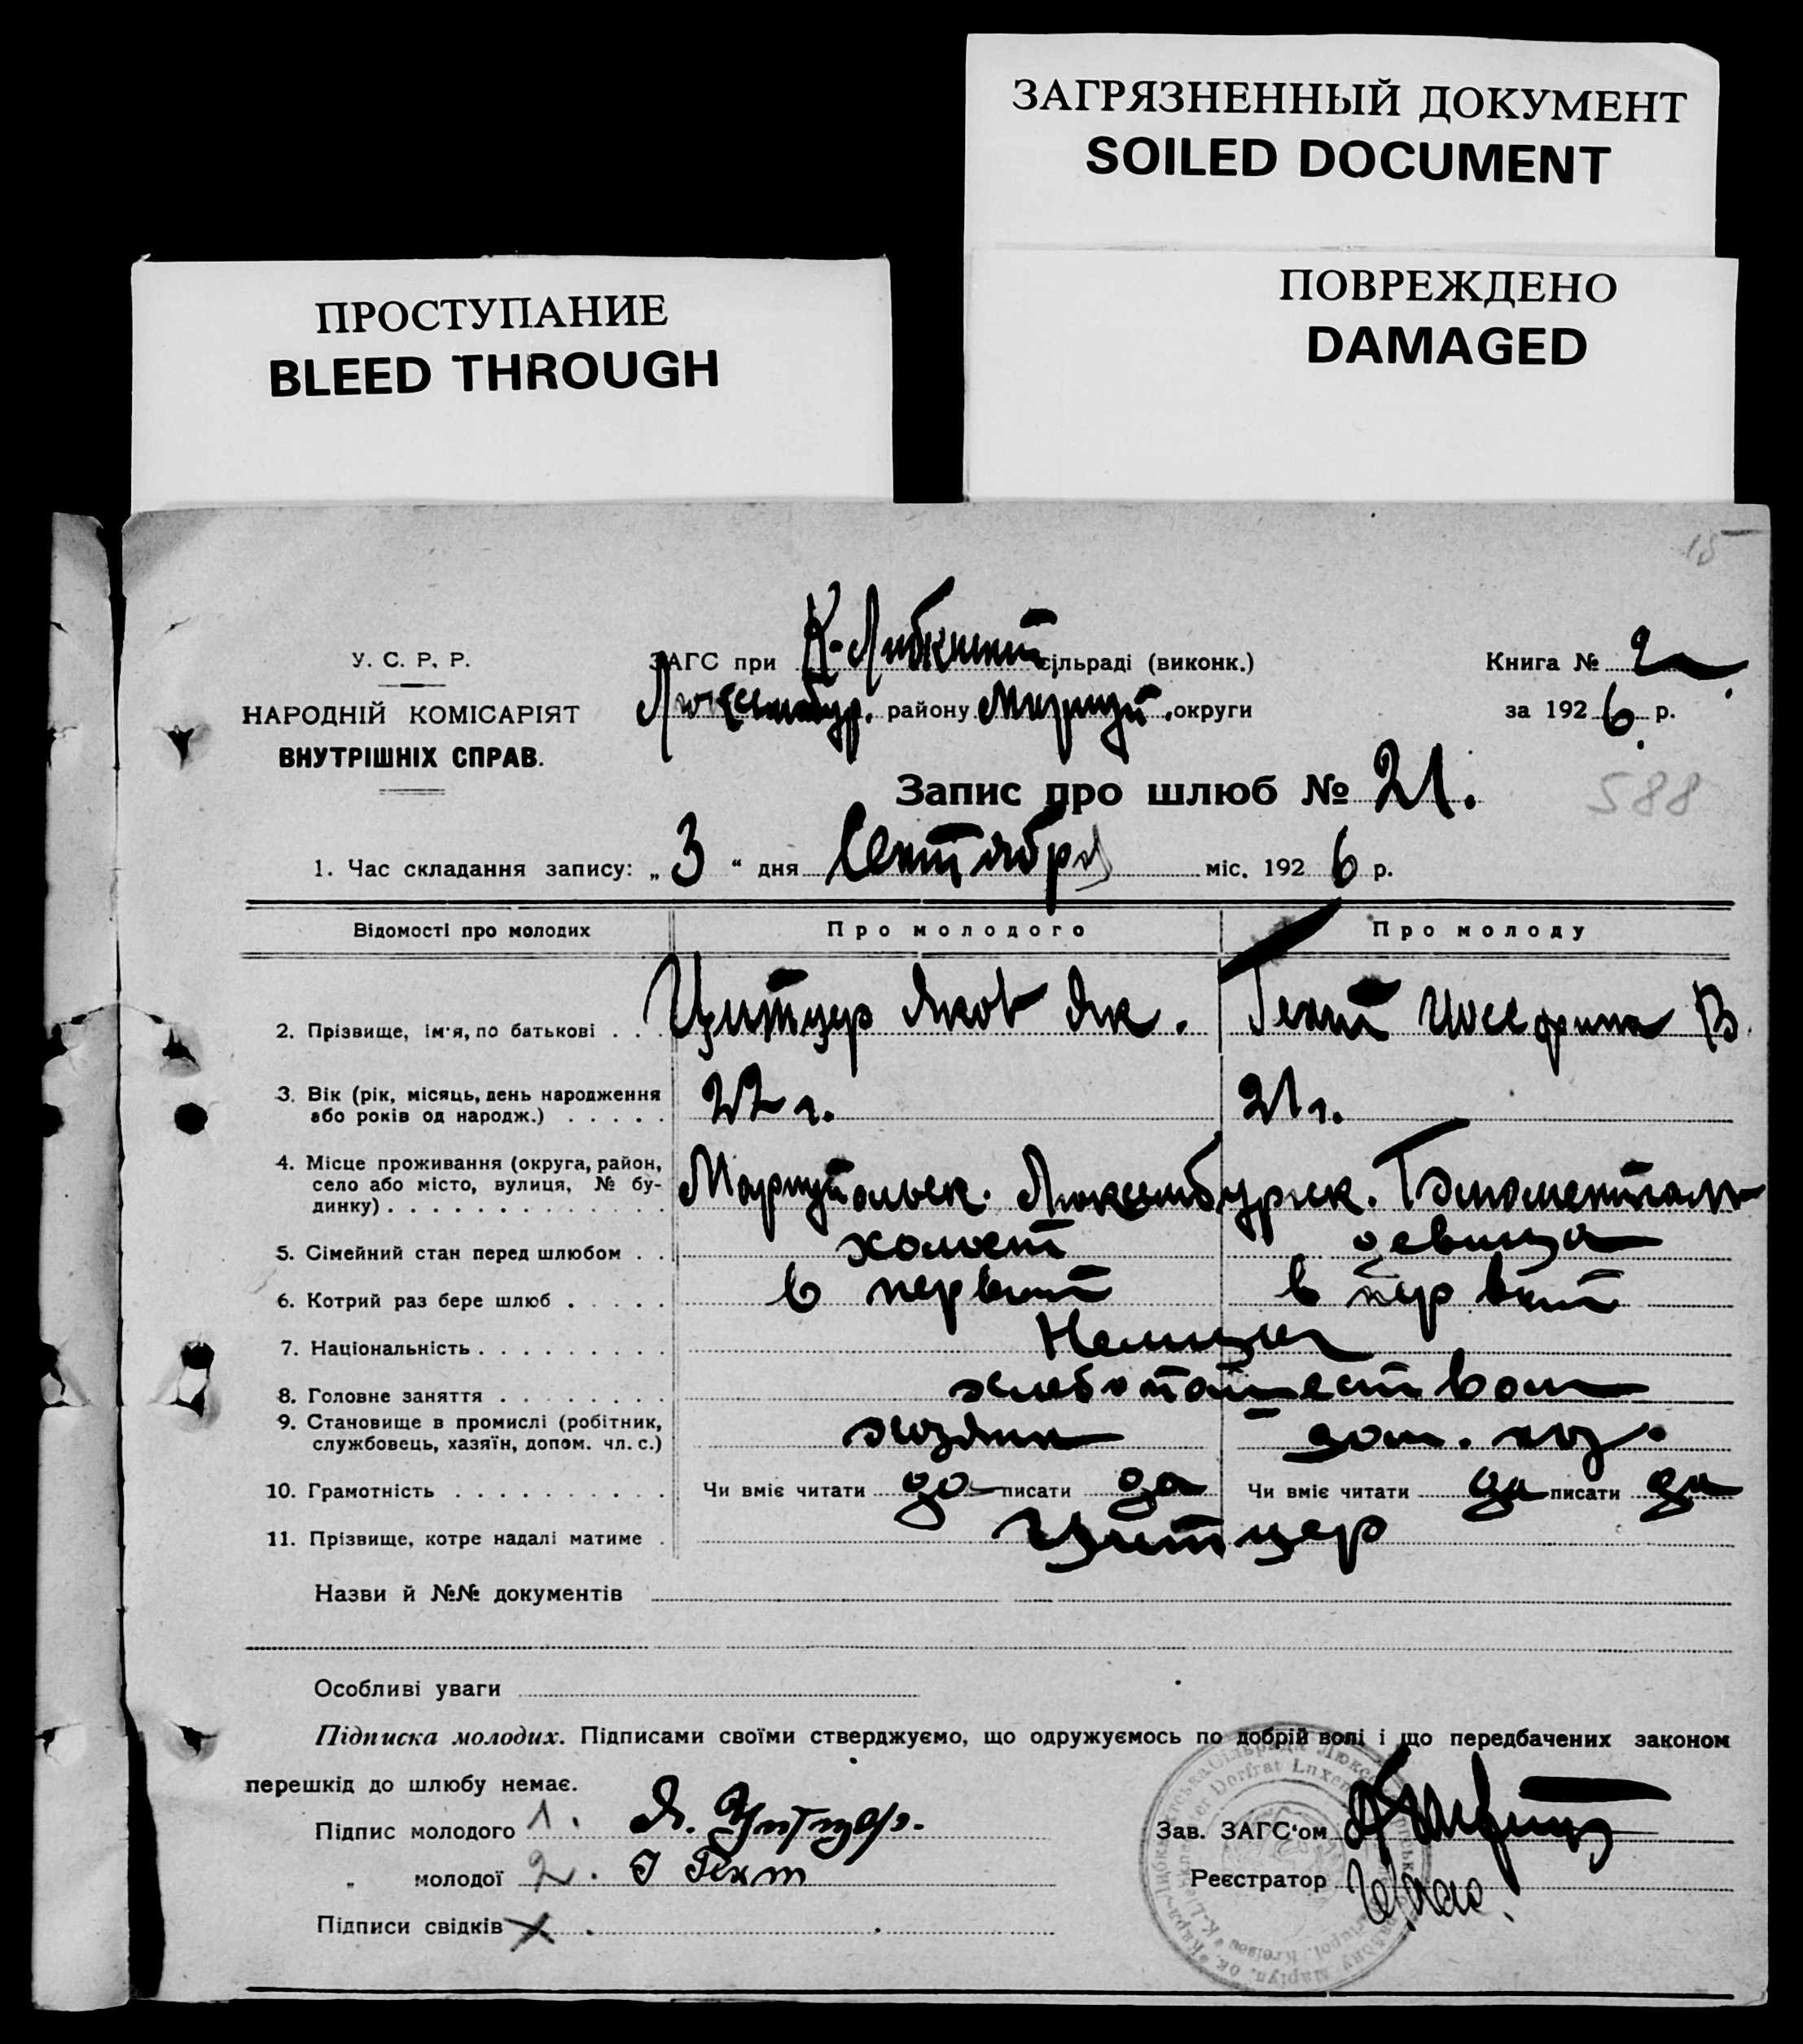 ЗАГРЯЗНЕННЫЙ ДОКУМЕНТ
SOILED DOCUMENT
ПРОСТУПАНИЕ
BLEED THROUGH
ПОВРЕЖДЕНО
DAMAGED
15
У. С. Р. Р.
НАРОДНІЙ КОМІСАРІЯТ
ВНУТРІШНІХ СПРАВ.
ЗАГС при К-Либкнехт сільраді (виконк.)
Люксембур. району Мариуп. округи
Книга № 2
за 1926 р.
Запис про шлюб № 21.
588
1. Час складання запису: „ 3 “ дня Сентября міс. 1926 р.
Відомості про молодих Про молодого Про молоду
2. Прізвище, ім'я, по батькові . . . Цитцер Яков Як. Гехт Иосефина В.
3. Вік (рік, місяць, день народження 22 г. 21 г.
або років од народж.) . . . . .
4. Місце проживання (округа, район, Мариупольск. Люксембургск.
село або місто, вулиця, № бу-
динку) . . . . . . . . . . . . .
5. Сімейний стан перед шлюбом . . холост девица
6. Котрий раз бере шлюб . . . . . в первый в первый
7. Національність . . . . . . . . . Немцы
8. Головне заняття . . . . . . . . хлебопашеством
9. Становище в промислі (робітник, хозяин дом. хоз.
службовець, хазяїн, допом. чл. с.)
10. Грамотність . . . . . . . . . . Чи вміє читати да писати да Чи вміє читати да писати да
11. Прізвище, котре надалі матиме . Цитцер
Назви й №№ документів
Особливі уваги
Підписка молодих. Підписами своїми стверджуємо, що одружуємось по добрій волі і що передбачених законом
перешкід до шлюбу немає.
Підпис молодого 1. Я. Цитцер.
„ молодої 2. І Гехт
Підписи свідків
Зав. ЗАГС'ом
Реєстратор